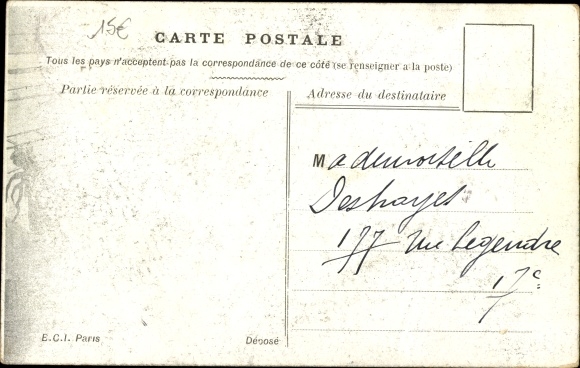 15€
CARTE POSTALE
Tous les pays n'acceptent pas la correspondance de ce côté (se renseigner a la poste)
Partie réservée à la correspondance
Adresse du destinataire
Mademoiselle
Deshayes
177 rue Legendre
17e
E.C.I. Paris
Déposé